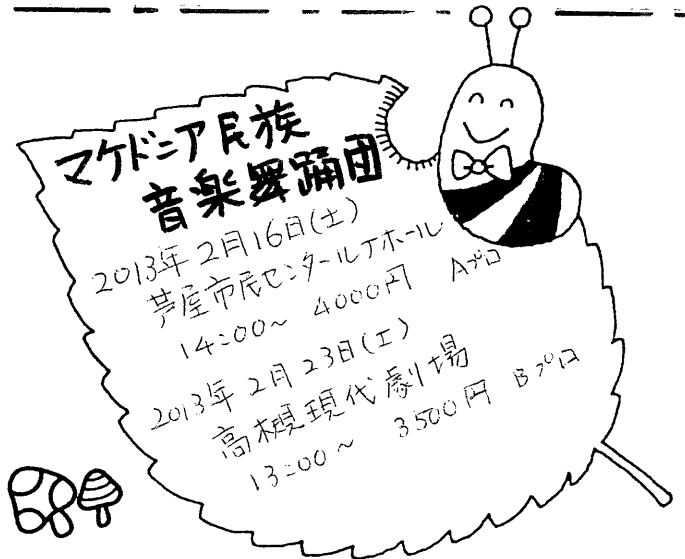 マケドニア民族
音楽舞踊団
2013年2月16日(土)
芦屋市民センタールナホール
14:00〜 4000円 Aプロ
2013年2月23日(土)
高槻現代劇場
13:00〜 3500円 Bプロ